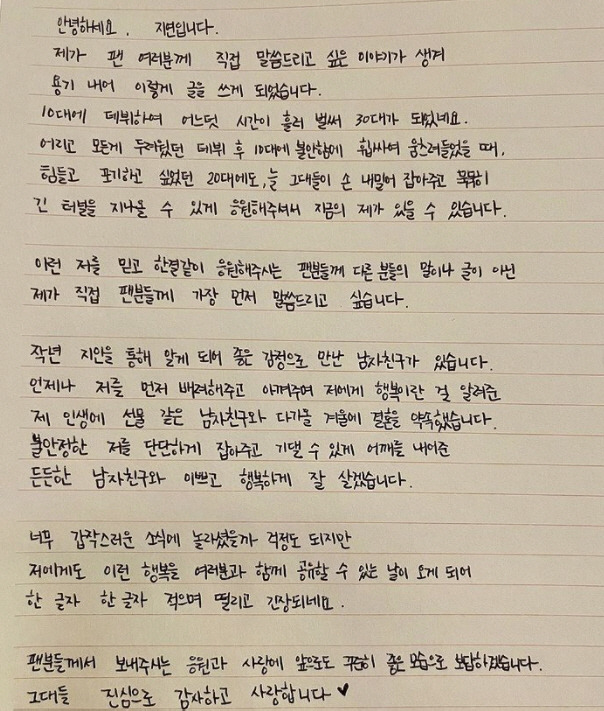 안녕하세요. 지연입니다.
제가 팬 여러분께 직접 말씀드리고 싶은 이야기가 생겨
용기 내어 이렇게 글을 쓰게 되었습니다.
10대에 데뷔하여 어느덧 시간이 흘러 벌써 30대가 되었네요.
어리고 모든게 두려웠던 데뷔 후 10대에 불안함에 휩싸여 움츠러들었을 때,
힘들고 포기하고 싶었던 20대에도, 늘 그대들이 손 내밀어 잡아주고 묵묵히
긴 터널을 지나올 수 있게 응원해주셔서 지금의 제가 있을 수 있습니다.
이런 저를 믿고 한결같이 응원해주시는 팬분들께 다른 분들의 말이나 글이 아닌
제가 직접 팬분들께 가장 먼저 말씀드리고 싶습니다.
작년 지인을 통해 알게 되어 좋은 감정으로 만난 남자친구가 있습니다.
언제나 저를 먼저 배려해주고 아껴주며 저에게 행복이란 걸 알려준
제 인생에 선물 같은 남자친구와 다가올 겨울에 결혼을 약속했습니다.
불안정한 저를 단단하게 잡아주고 기댈 수 있게 어깨를 내어준
든든한 남자친구와 이쁘고 행복하게 잘 살겠습니다.
너무 갑작스러운 소식에 놀라셨을까 걱정도 되지만
저에게도 이런 행복을 여러분과 함께 공유할 수 있는 날이 오게 되어
한 글자 한 글자 적으며 떨리고 긴장되네요.
팬분들께서 보내주시는 응원과 사랑에 앞으로도 꾸준히 좋은 모습으로 보답하겠습니다.
그대들 진심으로 감사하고 사랑합니다 ♥